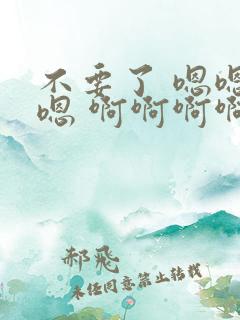 不要了 嗯嗯
嗯 啊啊啊啊
郝飛
未经同意禁止转载